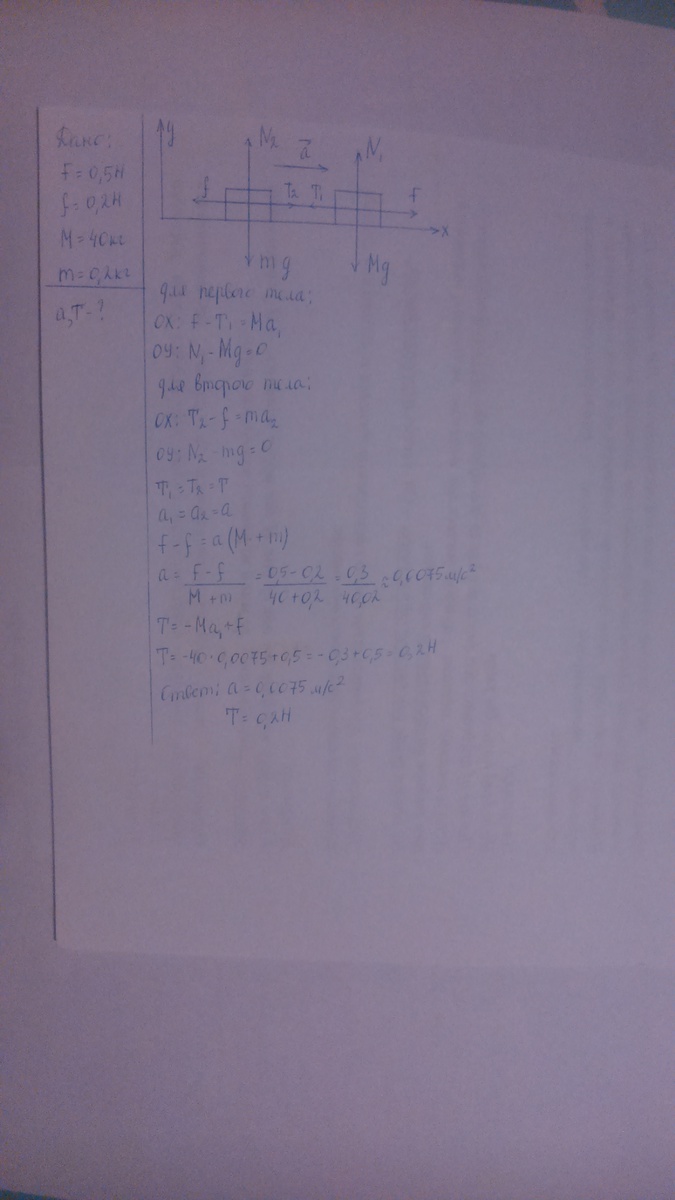 Дано:
F = 0,5Н
f = 0,2Н
M = 40кг
m = 0,2кг
a,T - ?
y
N2
a
N1
f
T2
T1
F
x
mg
Mg
для первого тела:
ОХ: F - T1 = Ma1
ОУ: N1 - Mg = 0
для второго тела:
ОХ: T2 - f = ma2
ОУ: N2 - mg = 0
T1 = T2 = T
a1 = a2 = a
F - f = a(M + m)
a = F - f / M + m = 0,5 - 0,2 / 40 + 0,2 = 0,3 / 40,02 ≈ 0,0075 м/с²
T = -Ma1 + F
T = -40 · 0,0075 + 0,5 = -0,3 + 0,5 = 0,2Н
Ответ: a = 0,0075 м/с²
T = 0,2Н